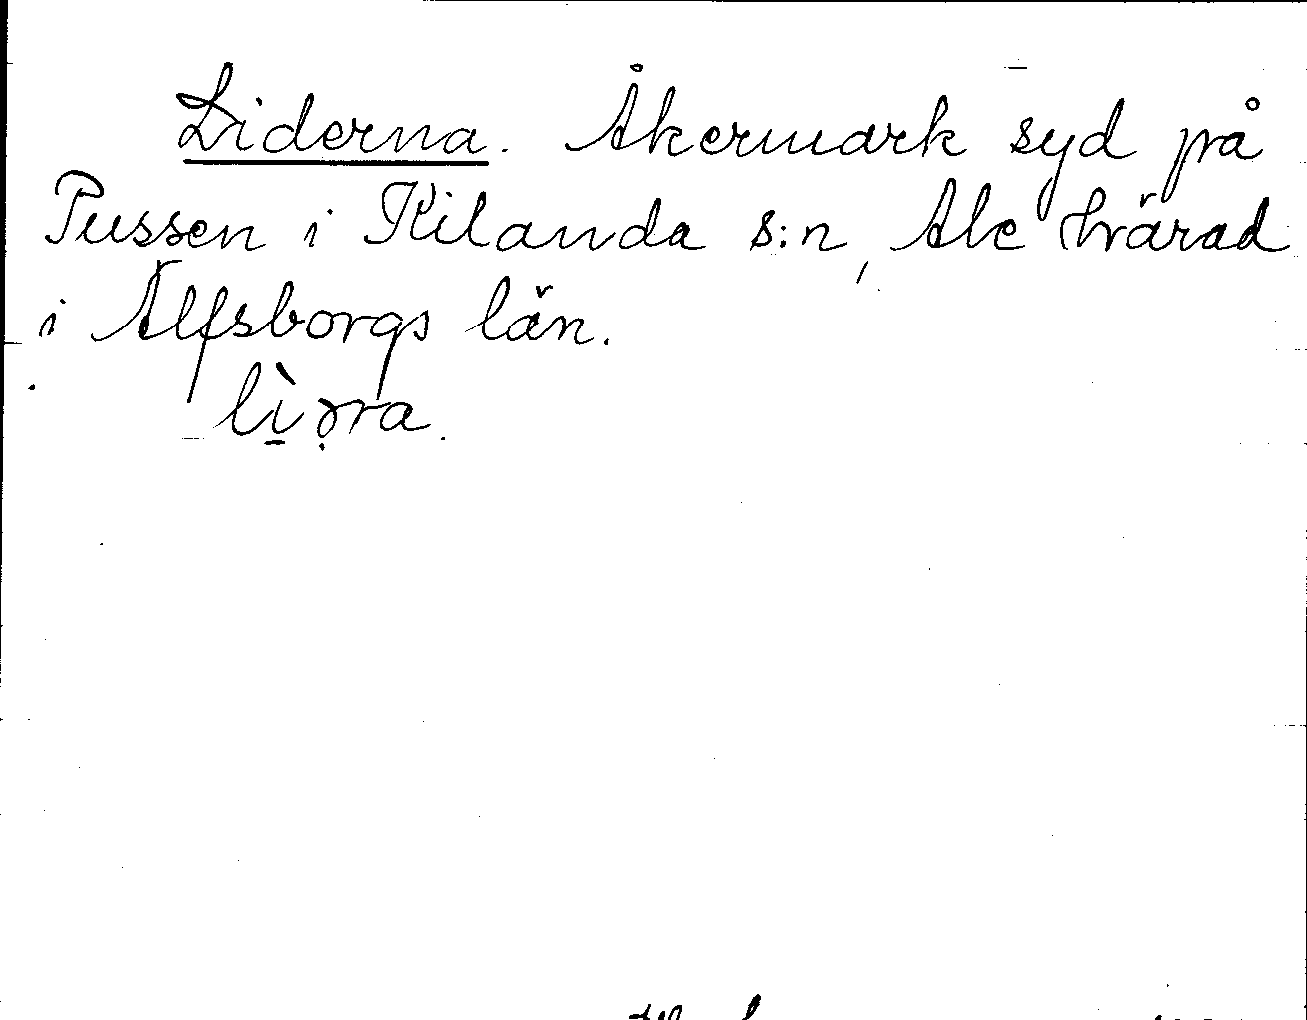 Liderna. Åkermark syd på
Pussen i Kilanda s:n, Ale härad
i Älfsborgs län.
lì̱ə̣ra.